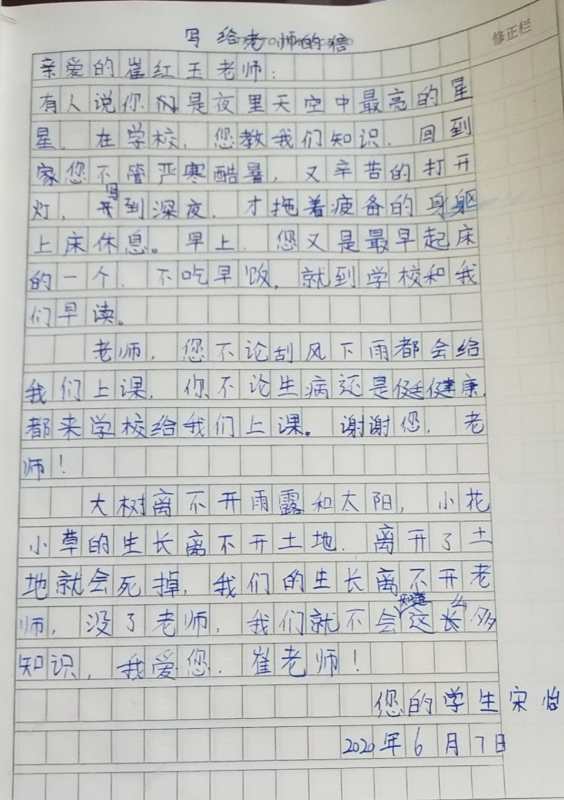 写给老师的信
修正栏
亲爱的崔红玉老师：
有人说你们是夜里天空中最亮的星
星，在学校，您教我们知识，回到
家您不管严寒酷暑，又辛苦的打开
灯，写到深夜，才拖着疲备的身躯
上床休息。早上，您又是最早起床
的一个，不吃早饭，就到学校和我
们早读。
老师，您不论刮风下雨都会给
我们上课，你不论生病还是健康，
都来学校给我们上课。谢谢您，老
师！
大树离不开雨露和太阳，小花
小草的生长离不开土地，离开了土
地就会死掉，我们的生长离不开老
师，没了老师，我们就不会知道这么多
知识，我爱您，崔老师！
您的学生宋怡
2020年6月7日